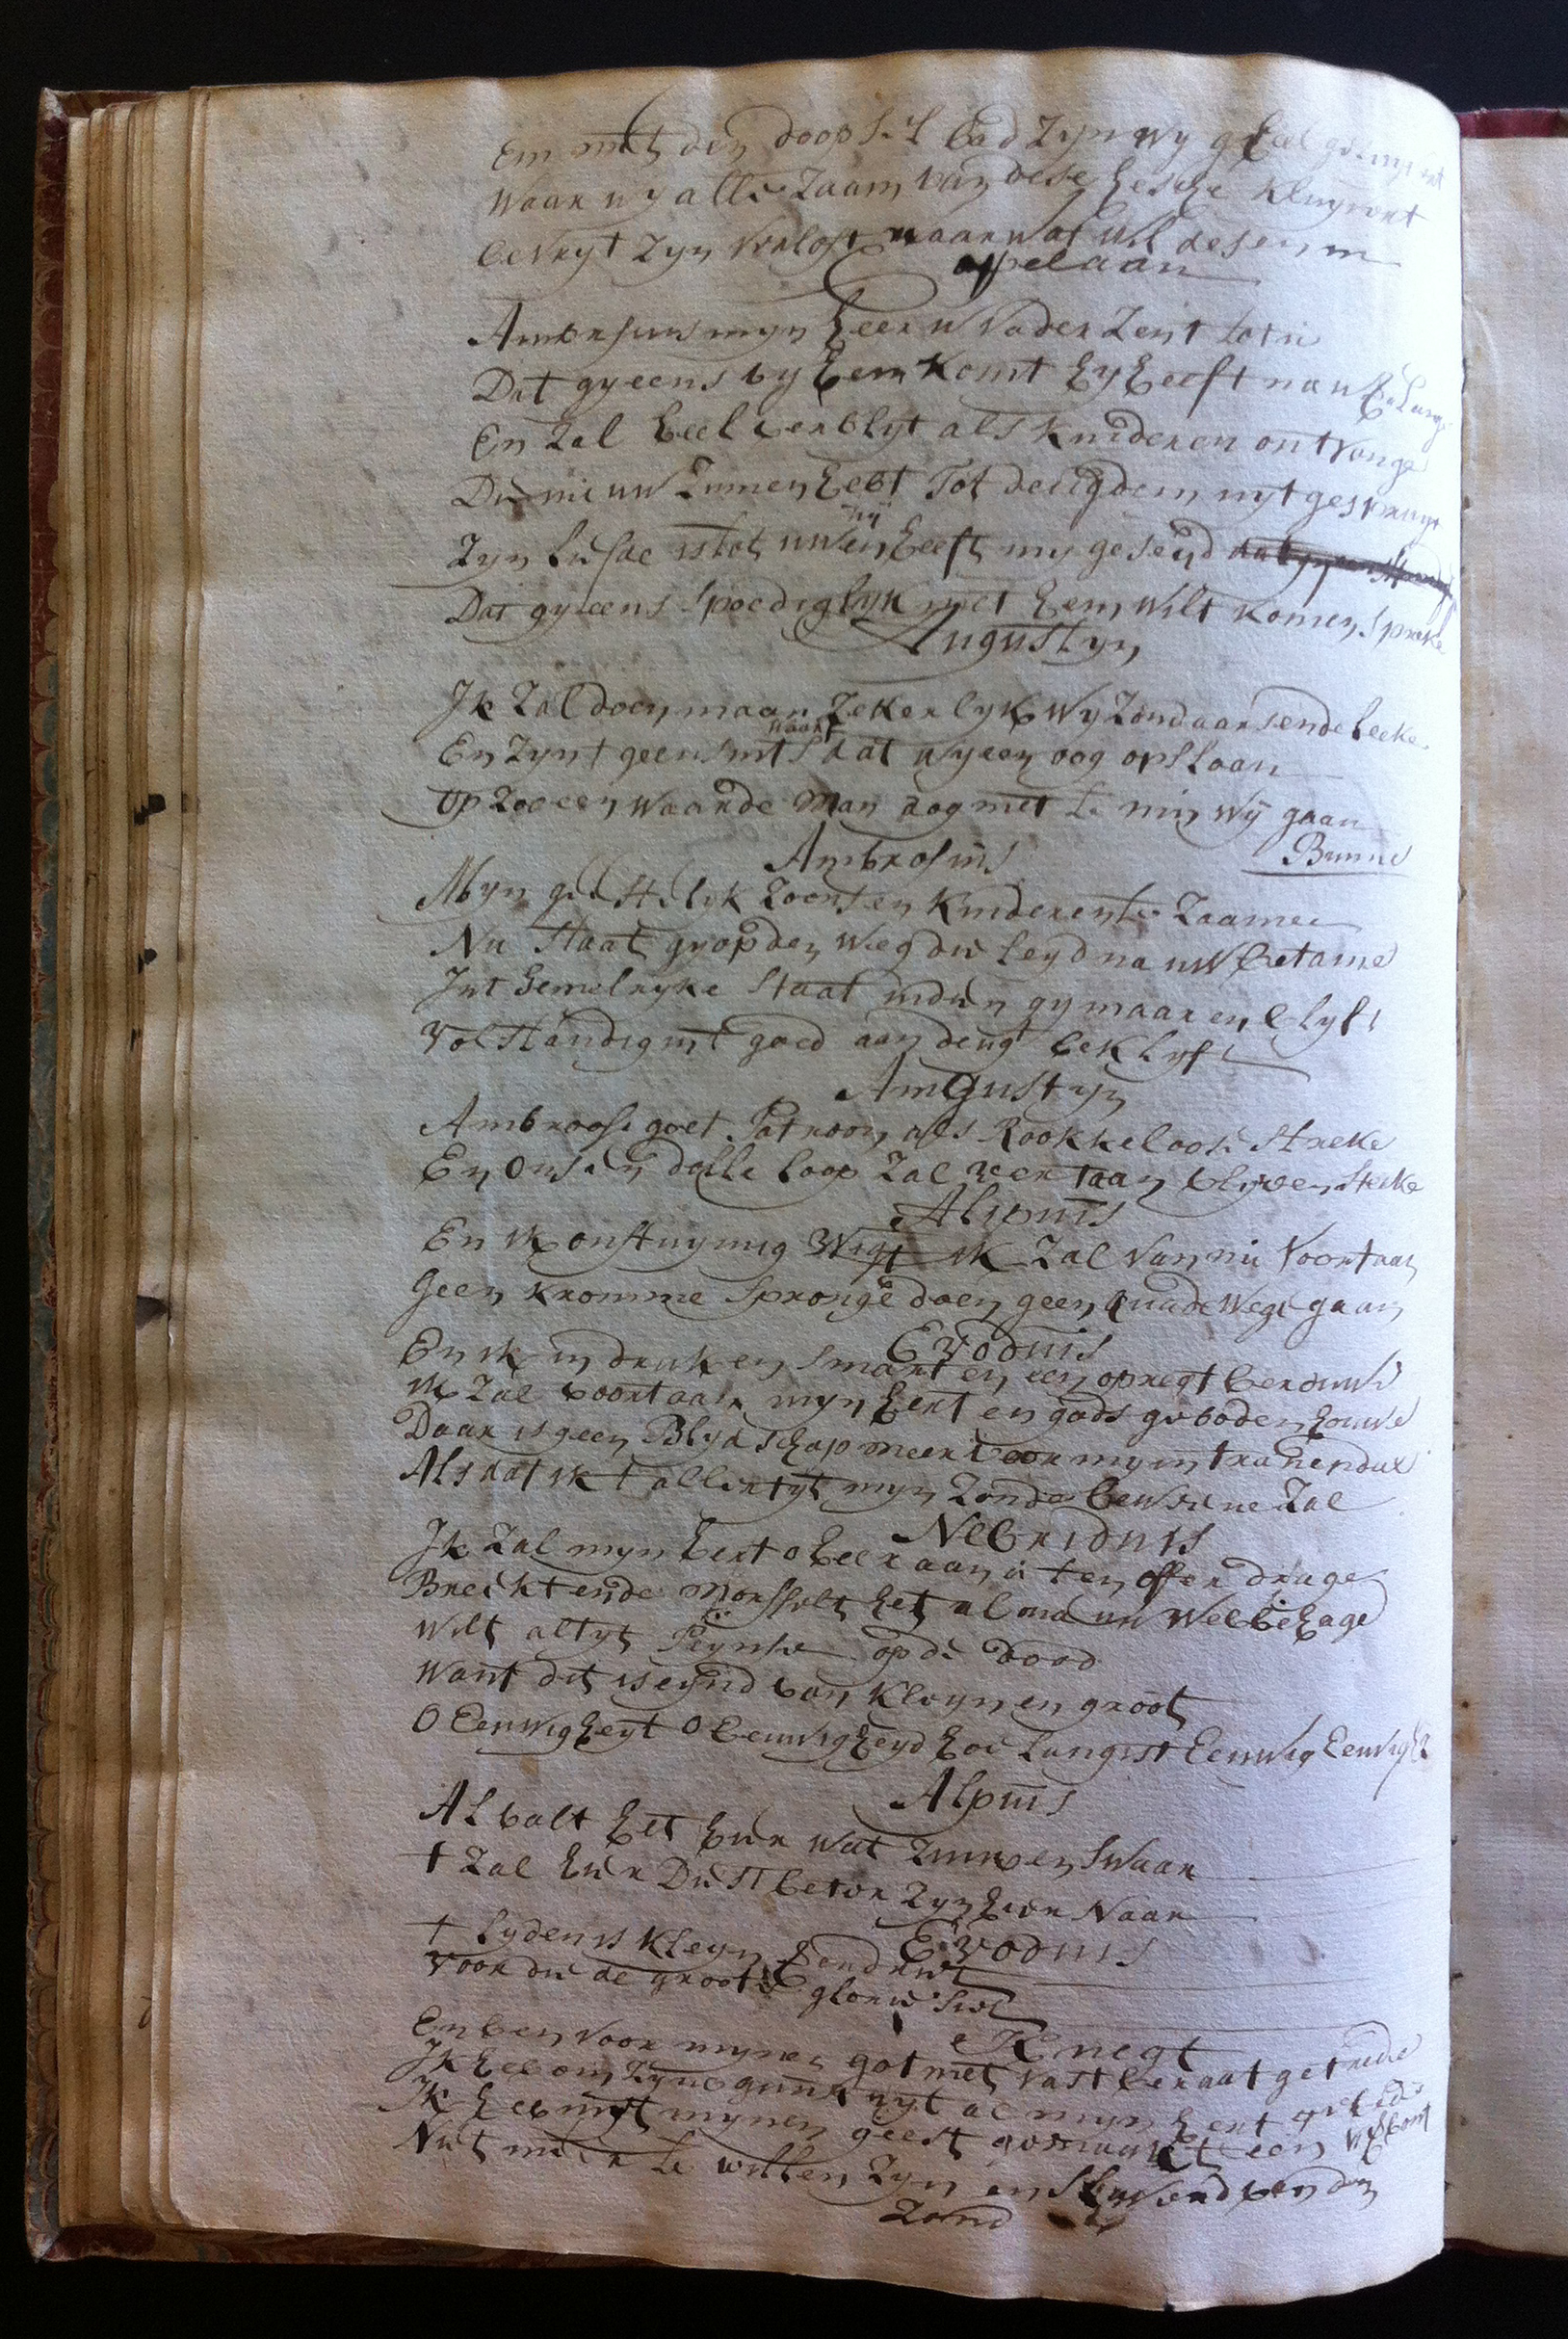 Em met den doopsel bad Zyn wy gheel
Waar wy alle Zaam van dese helsche kluywt
bevryt Zyn verlost maar wat wil desen m
apelaan
Ambrosius myn heer u vader Zent tot u
Dat gy eens by hem komt hy heeft na u
En Zal heel verblyt als kinderen ontvange
Die nieuw Zinnen hebt Tot deugden uyt
Zyn liefde is tot uwen hy heeft my geseyd
Dat gy eens spoediglyk met hem wilt komen spreke
Augustyn
Ik Zal doen maar Zekerlyk wy Zondaars ende leeke
En Zynt geensints waart dat wy een oog opslaan
Op Zoo een waarde man nog met te min wy gaan
Binne
Ambrosius
Myn geestelyk Zoons en kinderen te Zaame
Nu staat gy op den weg die leyd na uw betame
Int hemelryke staat indien gy maar en blyft
Volstandig int goed aan deugt beklyft
Amgustyn
Ambroose goet Patroon als Rookkeloose streke
En onsen dolle loop Zal voortaan blyven steke
Alipius
En ik onstuymig Wigt ik Zal van nu voortaan
Geen kromme spronge doen geen quade wege gaan
Evodius
En ik in druk en smart en een opregt berouwe
ik Zal voortaan myn hert en gods geboden houwe
Daar is geen Blydschap meer voor my in tranendal
Als dat ik t allertyt myn Zonde beweene Zal
Nebridius
Ik Zal myn hert o heer aan u ten offer drage
Breekt ende morsselt het al na uw welbehage
Wilt altyt Peynse op de dood
Want dit is eynd van kleyn en groot
O Eeuwigheyt O eeuwigheyd hoe lang ist Eeuwig Eeuwig
Alpius
Al valt het hier wat Zuur en swaar
t Zal hier Dies beter Zyn hier Naar
Evodius
t lyden is kleyn hendriet
Voor die de groote glorie siet
Knegt
En ben voor mynen got met vast beraat getrede
Ik heb om Zyne gunst uyt al myn hert gebede
Ik heb met mynen geest gemaakt een verbont
Niet meer te willen Zyn en slavend van den
Zond